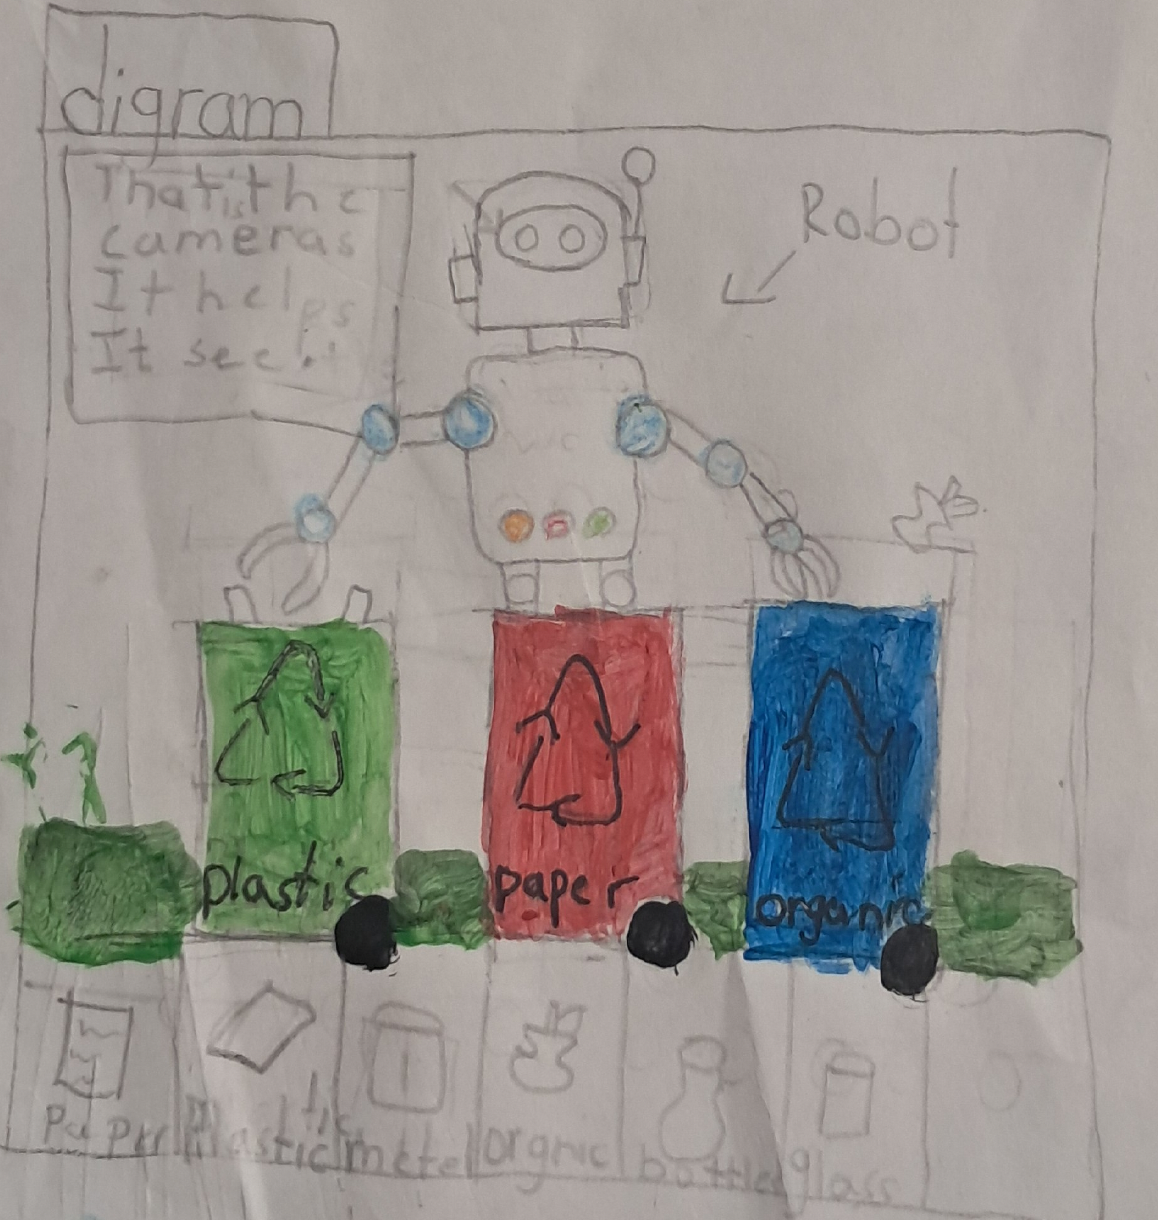 digram
That is the
cameras
It helps
It see!
Robot
plastic
paper
organic
Paper
Plastic
metel
orgnic
bottle
glass